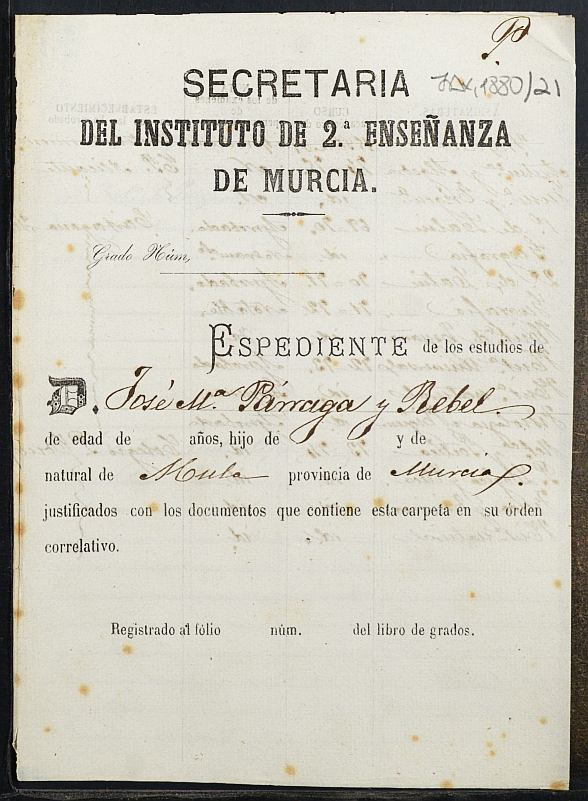 P
SECRETARIA
1880/21
DEL INSTITUTO DE 2.ª ENSEÑANZA
DE MURCIA.
Grado Núm,
ESPEDIENTE de los estudios de
D. José M.ª Párraga y Rebel.
de edad de años, hijo de y de
natural de Mula provincia de Murcia.
justificados con los documentos que contiene esta carpeta en su órden
correlativo.
Registrado al fólio núm. del libro de grados.